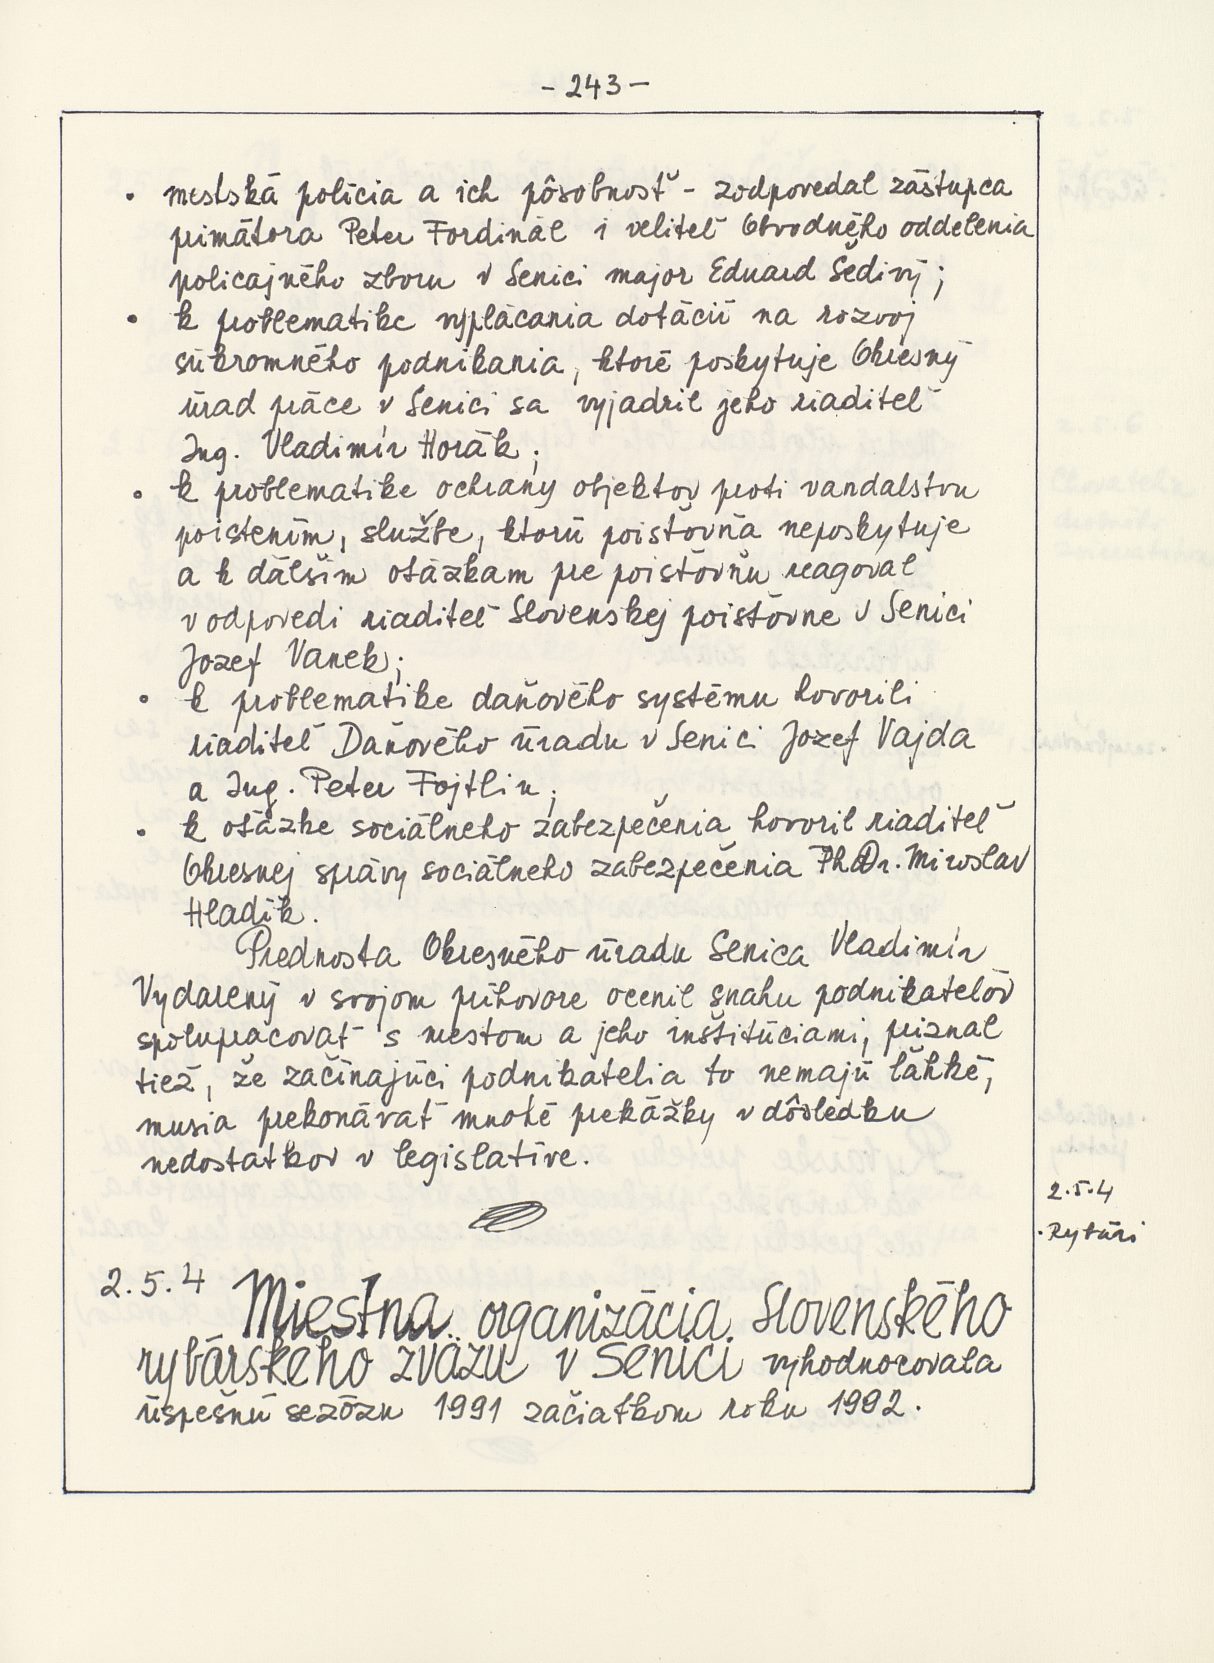 - 243 -
• mestská polícia a ich pôsobnosť - zodpovedal zástupca
primátora Peter Fordinál i veliteľ Obvodného oddelenia
policajného zboru v Senici major Eduard Šedivý;
• k problematike vyplácania dotácií na rozvoj
súkromného podnikania, ktoré poskytuje Okresný
úrad práce v Senici sa vyjadril jeho riaditeľ
Ing. Vladimír Horák;
• k problematike ochrany objektov proti vandalstvu
poistením, službe, ktorú poisťovňa neposkytuje
a k ďalším otázkam pre poisťovňu reagoval
v odpovedi riaditeľ Slovenskej poisťovne v Senici
Jozef Vanek;
• k problematike daňového systému hovorili
riaditeľ Daňového úradu v Senici Jozef Vajda
a Ing. Peter Fojtlin;
• k otázke sociálneho zabezpečenia hovoril riaditeľ
Okresnej správy sociálneho zabezpečenia PhDr. Miroslav
Hladík.
Prednosta Okresného úradu Senica Vladimír
Vydarený v svojom príhovore ocenil snahu podnikateľov
spolupracovať s mestom a jeho inštitúciami, priznal
tiež, že začínajúci podnikatelia to nemajú ľahké,
musia prekonávať mnohé prekážky v dôsledku
nedostatkov v legislatíve.
2.5.4
• Rybári
2.5.4 Miestna organizácia Slovenského
rybárskeho zväzu v Senici vyhodnocovala
úspešnú sezónu 1991 začiatkom roku 1992.